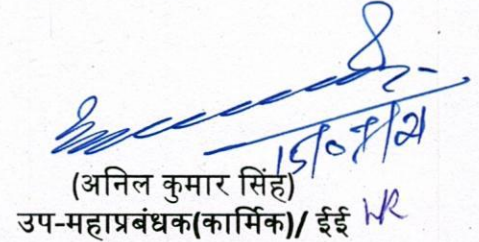 15/07/21
(अनिल कुमार सिंह)
उप-महाप्रबंधक(कार्मिक)/ ईई HR